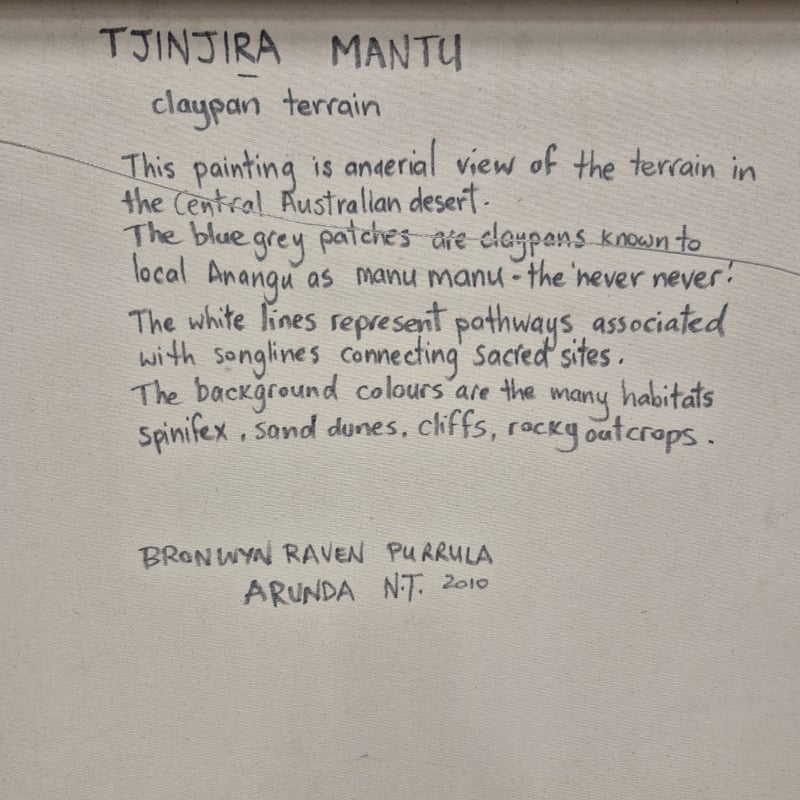 TJINJIṞA MANTU
claypan terrain
This painting is anaerial view of the terrain in
the Central Australian desert.
The blue grey patches are claypans known to
local Anangu as manu manu - the 'never never!
The white lines represent pathways associated
with songlines connecting sacred sites.
The background colours are the many habitats
spinifex, sand dunes, cliffs, rocky outcrops.
BRONWYN RAVEN PURRULA
ARUNDA N.T. 2010